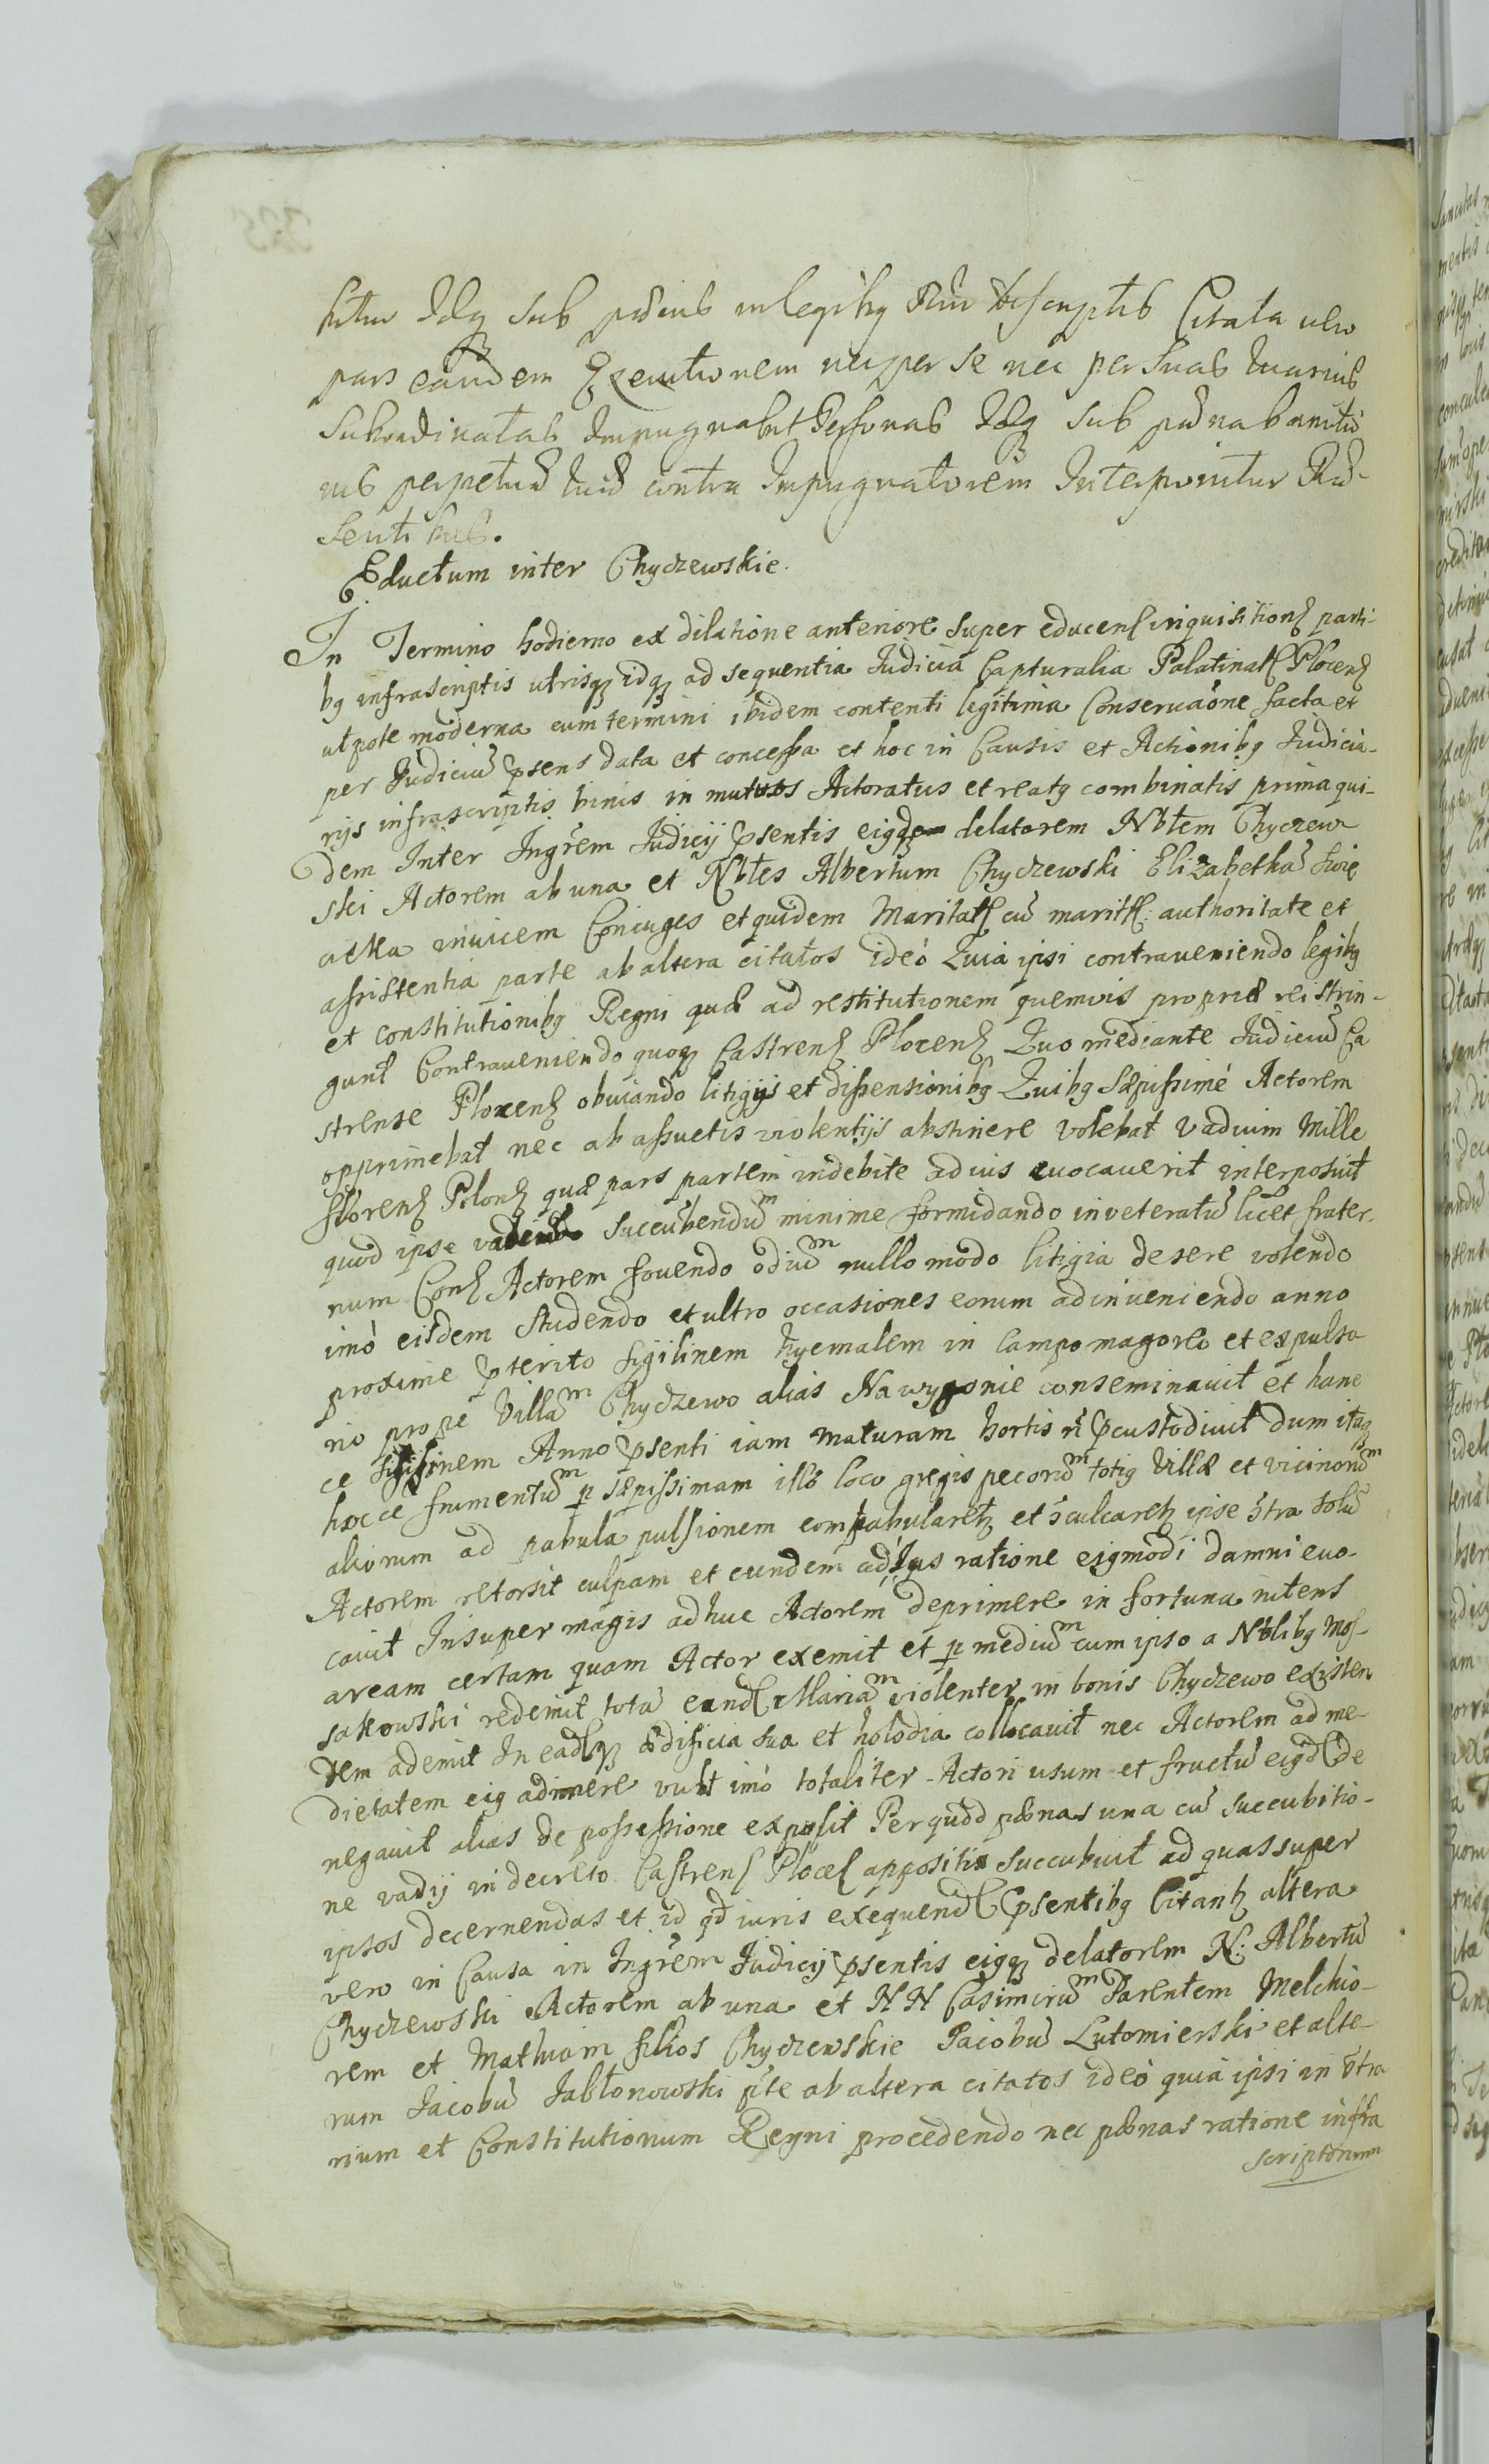 bitur Idq sub pænis in legibq Rni descriptis Citata vero
pars eandem Executionem nec per se nec per suas quasvis
Subordinatas Impugnabit Personas Idq sub pæna banitio
nis perpetuæ quæ contra Impugnatorem Interponitur Præ-
sentibus.
Eductum inter Chyczewskie.
In Termino hodierno ex dilatione anteriore super educen inquisition parti-
bq infrascriptis utrisq idq ad sequentia Iudicia Capturalia Palatinat Plocen
utpote moderna cum termini ibidem contenti legitima Conservaõne facta et
per Iudiciũ psens data et concessa et hoc in Causis et Actionibq Iudicia-
rijs infrascriptis binis in mutuos Actoratus et reatq combinatis prima qui-
dem Inter Ingrem Iudicij psentis eiqq delatorem Nbtem Chyczew
ski Actorem ab una et Nbtes Albertum Chyczewski Elizabethã
invicem Coniuges et quidem Maritat cũ marit: authoritate et
assistentia parte ab altera citatos ideó Quia ipsi contraveniendo legibq
et constitutionibq Regni quæ ad restitutionem quemvis propriæ rei strin-
gunt Contraveniendo quoq Castren Plocen Quo mediante Iudiciũ Ca
strense Plocen obviando litigijs et dissensionibq Quibq Sæpissimé Actorem
opprimebat nec ab assuetis violentijs abstinere volebat Vadium Mille
floren Polon quæ pars partem indebite ad ius evocaverit interposuit
quod ipse succubendũ minime formidando inveteratũ licet frater-
num Con Actorem fovendo odiũ nullo modo litigia desere volendo
imò eisdem studendo et ultro occasiones eorum adinveniendo anno
proxime pterito siglinem hyemalem in Campo et expulso
rio prope Villã Chyczewo alias Na wygonie conseminavit et hanc
ce Anno psenti iam maturam hortis ñ pcustodivit dum itaq
hocce frumentũ p sæpissimam illo loco gregis pecorũ totiq Villæ et vicinorũ
aliorum ad pabula pulsionem compabularetq et culcaretq ipse tra totũ
Actorem retorsit culpam et eundem ad Ius ratione eiqmodi damni evo-
cavit Insuper magis adhuc Actorem deprimere in fortuna nitens
aream certam quam Actor exemit et p mediũ cum ipso a Nblibq Mos-
sakowski redemit totã eand violenter in bonis Chyczewo existen
tem ademit In eadq ædificia sua et holodia collocavit nec Actorem ad me-
dietatem eiq admere vult imò totaliter Actori usum et fructũ eiqd de
negavit alias de possessione expulit Per quod pænas una cũ succubitio-
ne vadij in decreto Castren Ploce appositis succubuit ad quas super
ipsos decernendas et id qd iuris exequend psentibq Citant altera
vero in Causa in Ingrem Iudicij psentis eiqq delatorem N: Albertũ
Chyczewski Actorem ab una et NN Casimirũ Parentem Melchio-
rem et Mathiam filios Chyczewskie Iacobũ Lutomierski et alte-
rum Iacobũ Jabłonowski pte ab altera citatos ideò quia ipsi in
rium et Constitutionum Regni procedendo nec pænas ratione infra
scriptorum